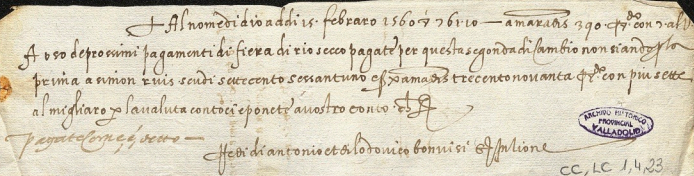 ✝ Al nome di dio addi 15 febraro 1560 ▽ 761.10 — a maravedis 390
A uso de prossimi pagamenti di fiera di riosecco pagate per questa segonda di Cambio non siando per la
prima a simon ruis scudi settecento sessantuno a maravedis trecentonovanta con piu sette
al migliaro per la valuta contoci e ponete a vostro conto
pagate come é detto
Redi di antonio et di lodovico bonvisi di lione
ARCHIVO HISTORICO
PROVINCIAL
VALLADOLID
CC, LC 1,4,23